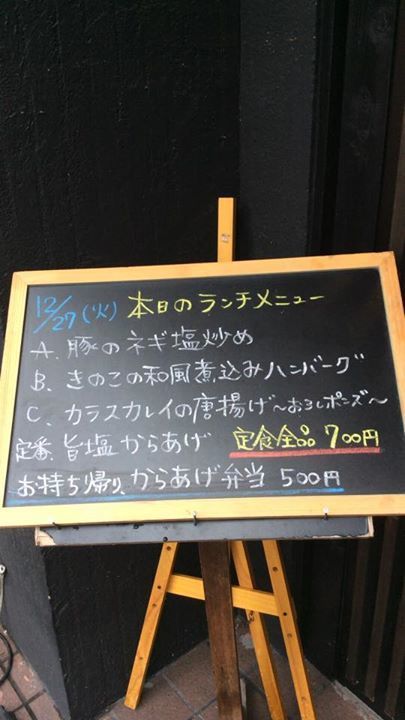 12/27(火) 本日のランチメニュー
A. 豚のネギ塩炒め
B. きのこの和風煮込みハンバーグ
C. カラスカレイの唐揚げ〜おろしポンズ〜
定番、旨塩からあげ 定食全品 700円
お持ち帰り、からあげ弁当 500円